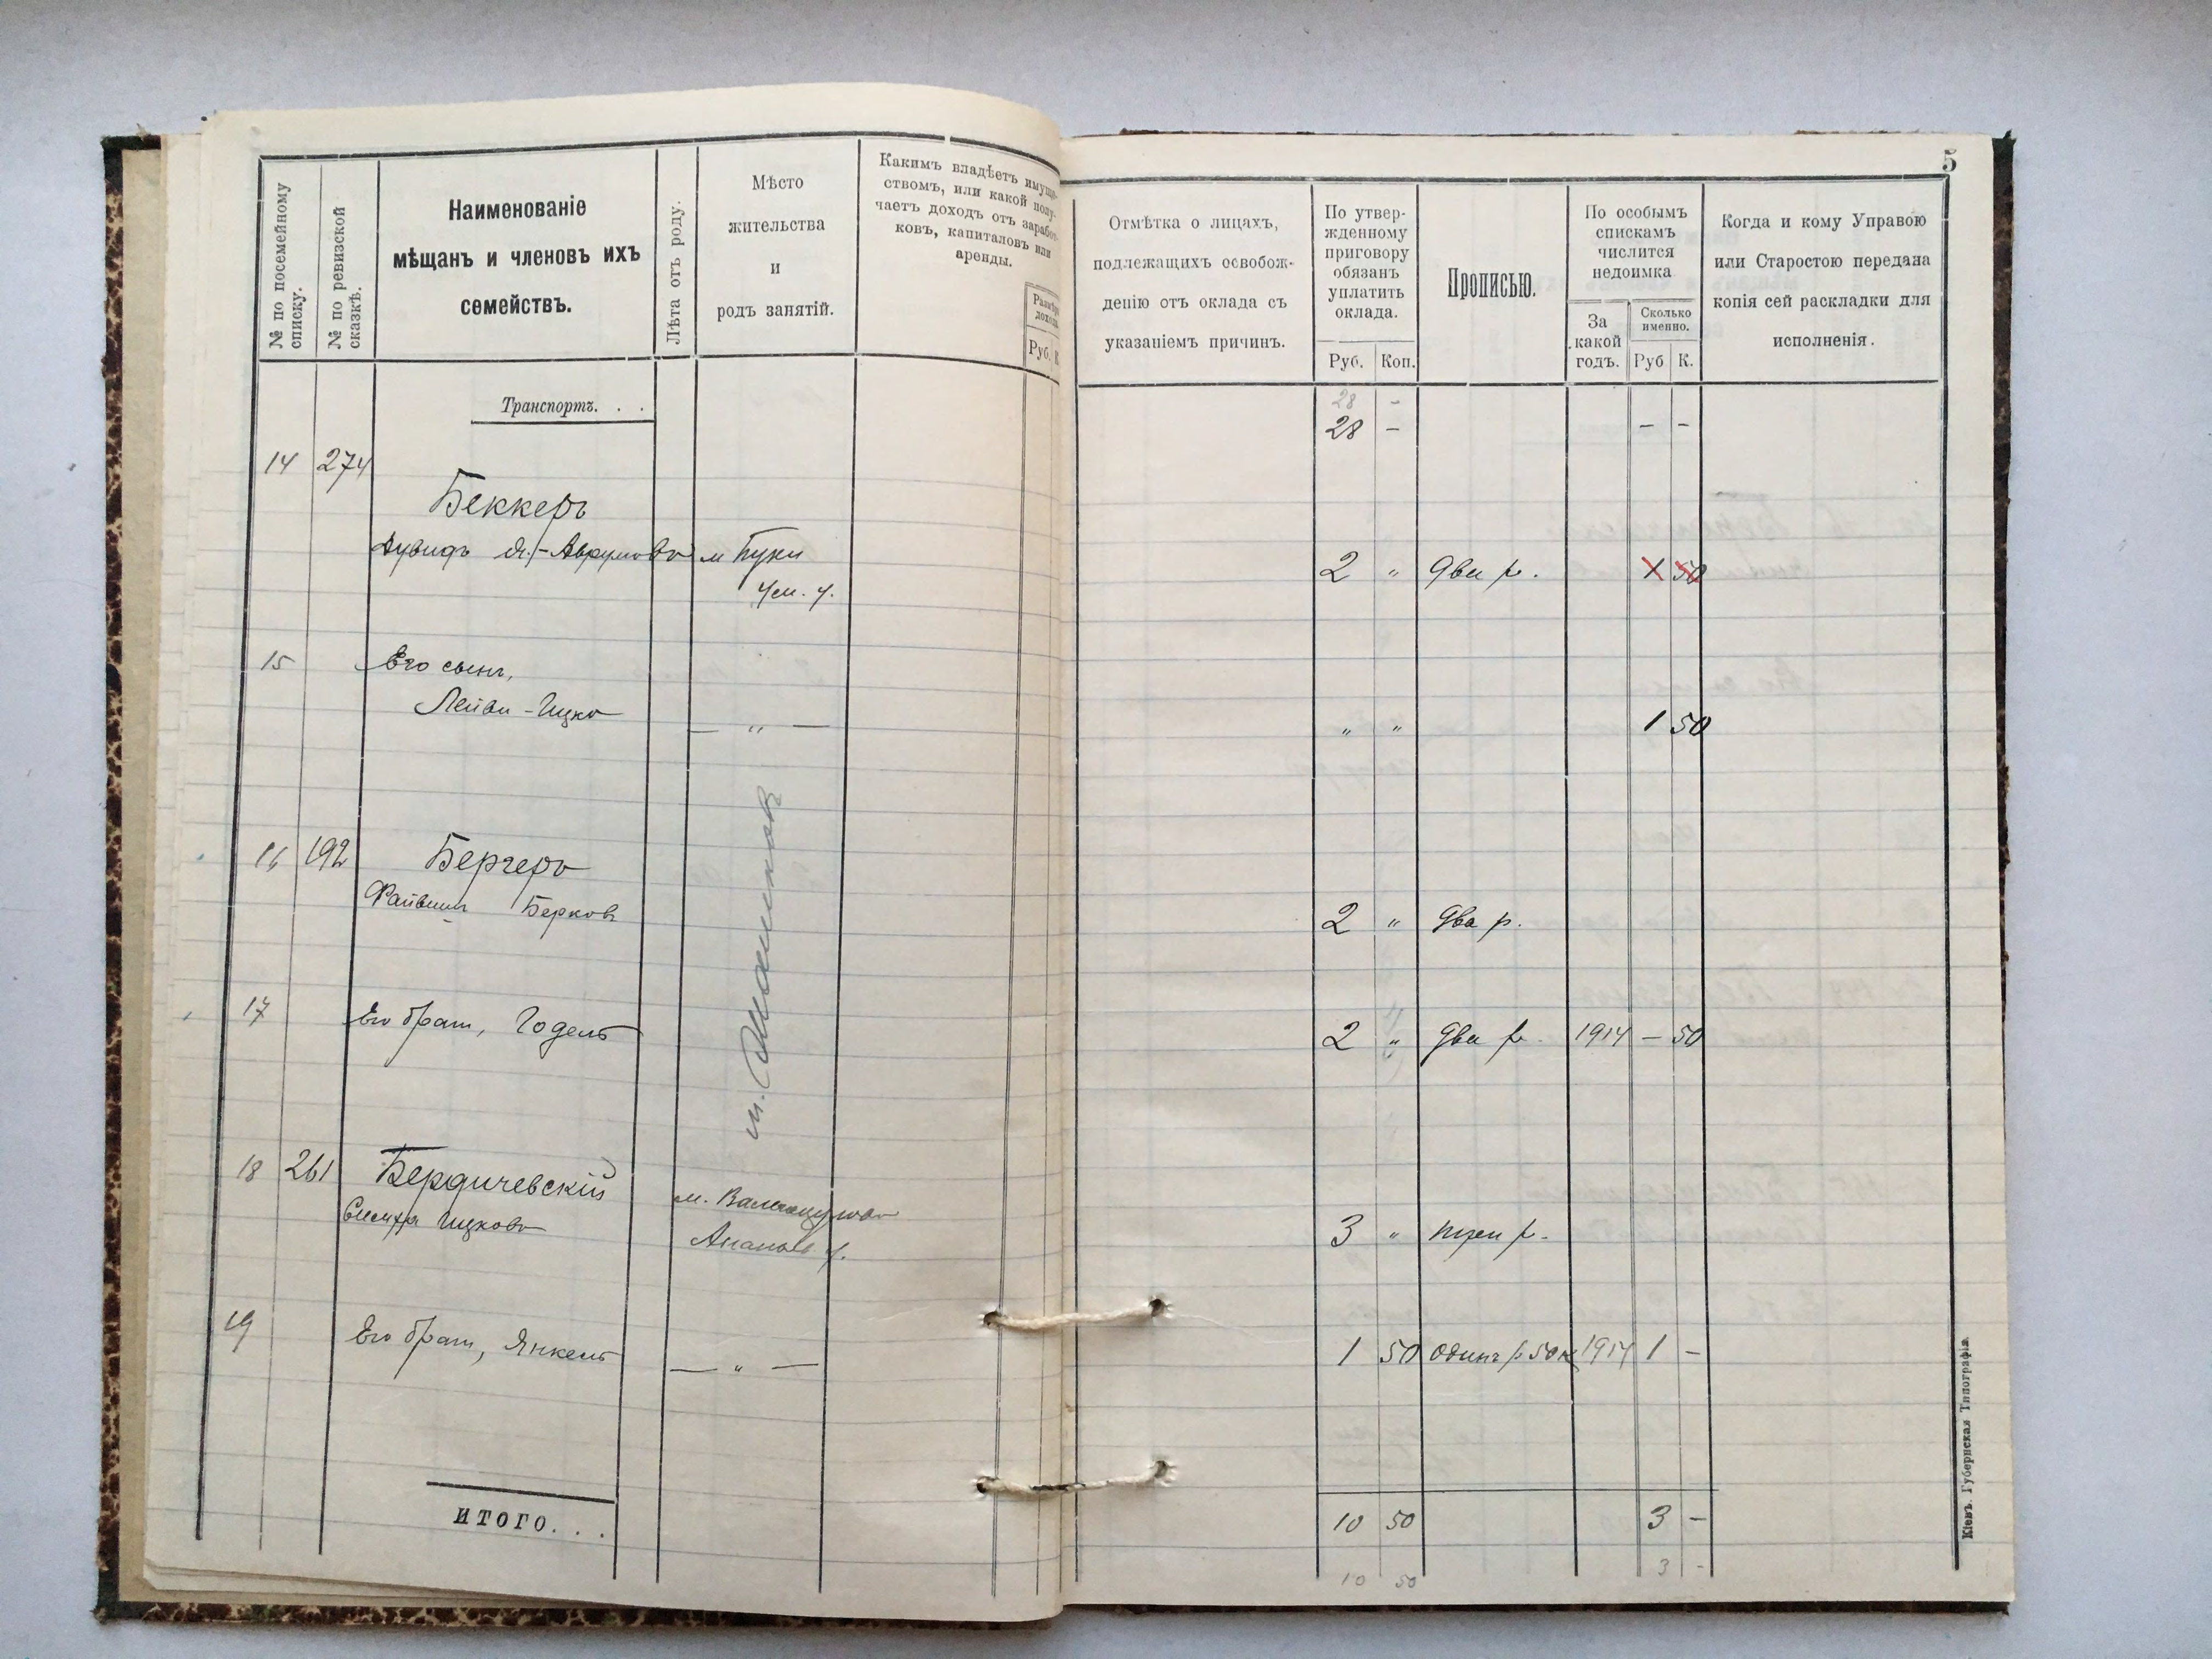 № по посемейному списку.
№ по ревизской сказкѣ.
Наименованіе
мѣщанъ и членовъ ихъ
семействъ.
Лѣта отъ роду.
Мѣсто
жительства
и
родъ занятій.
Какимъ владѣетъ имуще-
ствомъ, или какой полу-
чаетъ доходъ отъ заработ-
ковъ, капиталовъ или
аренды.
Руб. К.
5
Отмѣтка о лицахъ,
подлежащихъ освобож-
денію отъ оклада съ
указаніемъ причинъ.
По утвер-
жденному
приговору
обязанъ
уплатить
оклада.
Руб. Коп.
Прописью.
По особымъ
спискамъ
числится
недоимка
За
какой
годъ.
Сколько
именно.
Руб К.
Когда и кому Управою
или Старостою передана
копія сей раскладки для
исполненія.
Транспортъ. . .
28 -
28 - - -
14 274
Беккеръ
Дувидъ Я.-Аврумовъ м Буки
Ум. у.
2 " два р. 1 50
15 Его сынъ,
Лейви-Ицко — " — " " 1 50
16 192 Бергеръ
Файвишъ Берковъ 2 " два р.
17 Его братъ, Годель 2 " два р. 1914 — 50
18 261 Бердичевскій
Симха Ицковъ м.
Ананьев у.
3 " три р.
19 Его братъ, Янкель — " — 1 50 одинъ р 50 к 1914 1 -
ИТОГО. . . 10 50 3 -
10 50 3 -
Кіевъ. Губернская Типографія